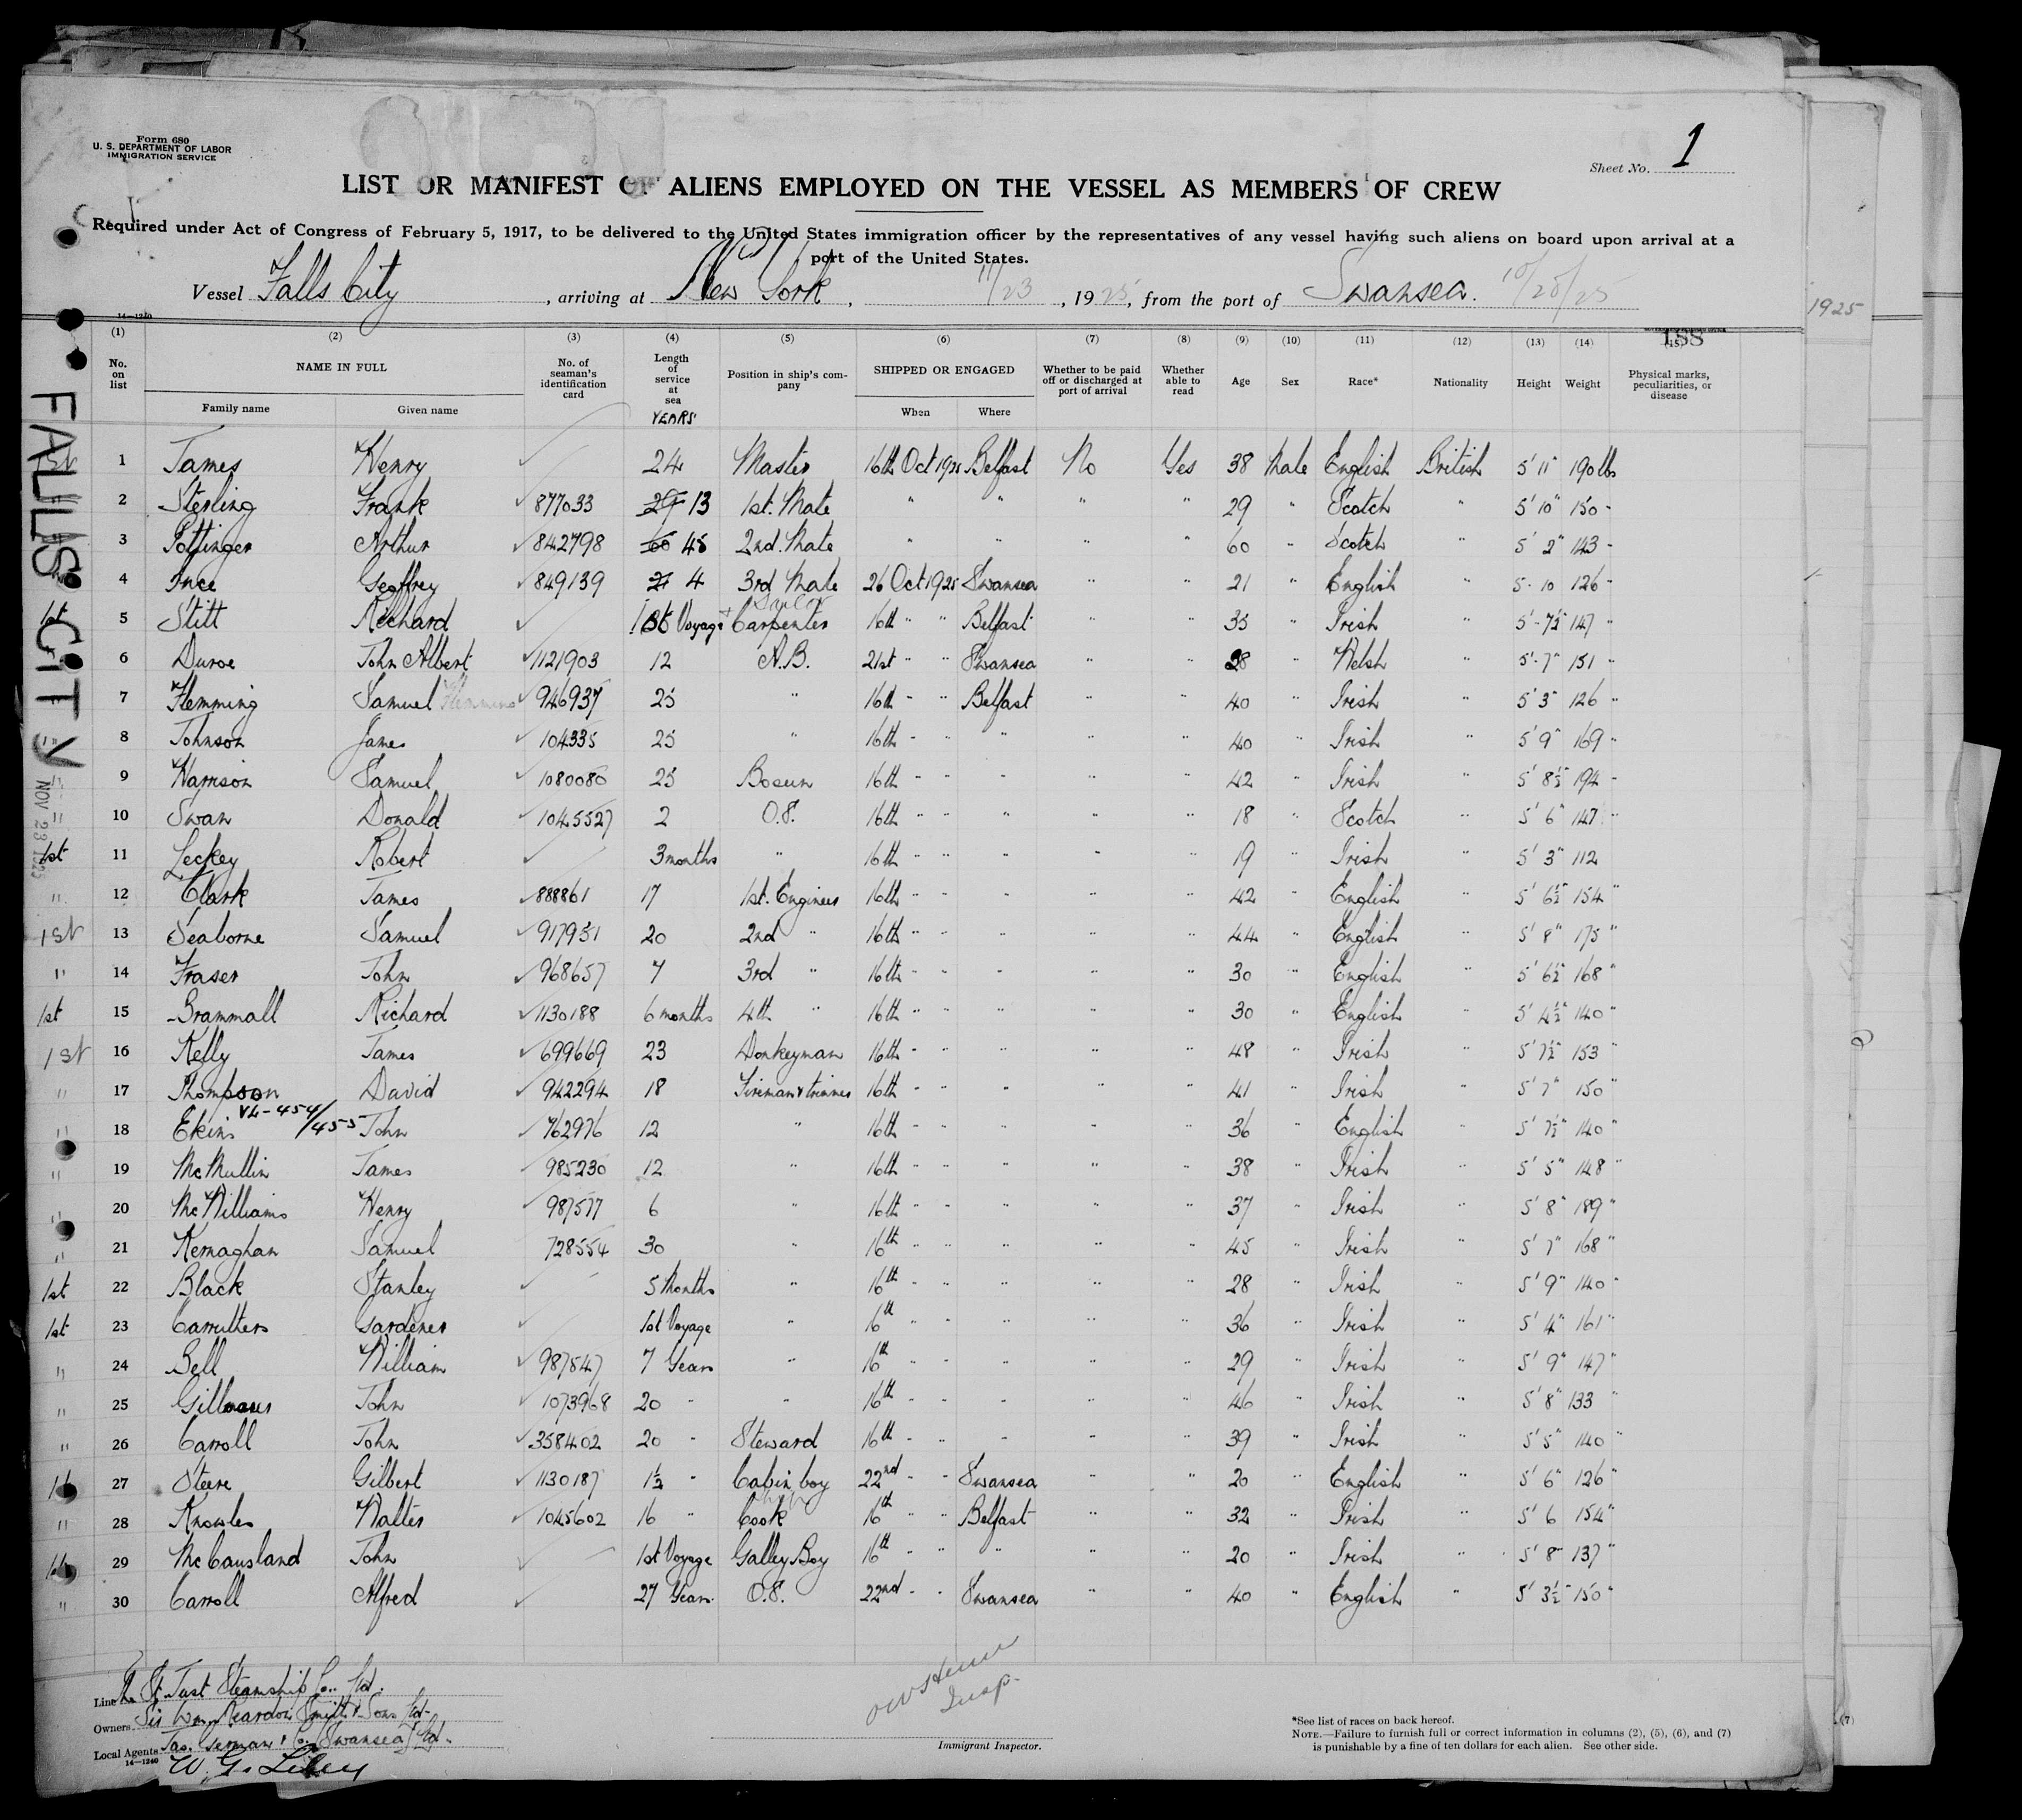 Form 680
U. S. DEPARTMENT OF LABOR
IMMIGRATION SERVICE
Sheet No. 1
LIST OR MANIFEST OF ALIENS EMPLOYED ON THE VESSEL AS MEMBERS OF CREW
Required under Act of Congress of February 5, 1917, to be delivered to the United States immigration officer by the representatives of any vessel having such aliens on board upon arrival at a
port of the United States.
Vessel Falls City, arriving at New York, 11/23, 1925, from the port of Swansea. 10/28/25
1925
14—1240
188
(1) (2) (3) (4) (5) (6) (7) (8) (9) (10) (11) (12) (13) (14) (15)
No. on list NAME IN FULL Family name Given name No. of seaman's identification card Length of service at sea YEARS Position in ship's company SHIPPED OR ENGAGED When Where Whether to be paid off or discharged at port of arrival Whether able to read Age Sex Race* Nationality Height Weight Physical marks, peculiarities, or disease
1 James Henry 24 Master 16th Oct 1925 Belfast No Yes 38 Male English British 5' 11" 190 lbs
2 Sterling Frank 877033 29 13 1st. Mate " " " 29 " Scotch " 5' 10" 150 "
3 Pottinger Arthur 842798 60 45 2nd. Mate " " " 60 " Scotch " 5' 2" 143 "
4 Ince Geoffrey 849139 21 4 3rd Mate 26 Oct 1925 Swansea " " 21 " English " 5 - 10 126 "
1st 5 Stitt Richard 1st Voyage Carpenter 16th " " Belfast " " 35 " Irish " 5' - 7½ 147 "
6 Duroe John Albert 1121903 12 A.B. 21st " " Swansea " " 28 " Welsh " 5' - 7" 151 "
7 Flemming Samuel 946937 25 " 16th " " Belfast " " 40 " Irish " 5' 3" 126 "
" 8 Johnson James 104335 25 " 16th " " " " " 40 " Irish " 5' 9" 169 "
" 9 Harrison Samuel 1080080 25 Bosun 16th " " " " " 42 " Irish " 5' 8½" 194 "
" 10 Swan Donald 1045527 2 O.S. 16th " " " " " 18 " Scotch " 5' 6" 147 "
1st 11 Leckey Robert 3 months " 16th " " " " " 19 " Irish " 5' 3" 112
" 12 Clark James 888861 17 1st. Engineer 16th " " " " " 42 " English " 5' 6½" 154 "
1st 13 Seaborne Samuel 917951 20 2nd " 16th " " " " " 44 " English " 5' 8" 175 "
" 14 Fraser John 968657 7 3rd " 16th " " " " " 30 " English " 5' 6½" 168 "
1st 15 Brammall Richard 1130188 6 months 4th " 16th " " " " " 30 " English " 5' 4½" 140 "
1st 16 Kelly James 699669 23 Donkeyman 16th " " " " " 48 " Irish " 5' 7½" 153 "
" 17 Thompson David 942294 18 Fireman & trimmer 16th " " " " " 41 " Irish " 5' 7" 150 "
VL-454/455
" 18 Ekins John 762976 12 " 16th " " " " " 36 " English " 5' 7½" 140 "
" 19 McMullin James 985230 12 " 16th " " " " " 38 " Irish " 5' 5" 148 "
" 20 McWilliams Henry 987577 6 " 16th " " " " " 37 " Irish " 5' 8" 189 "
" 21 Kernaghan Samuel 728554 30 " 16th " " " " " 45 " Irish " 5' 7" 168 "
1st 22 Black Stanley 5 Months " 16th " " " " " 28 " Irish " 5' 9" 140 "
1st 23 Carruthers Gardener 1st Voyage " 16th " " " " " 36 " Irish " 5' 4" 161 "
" 24 Bell William 987547 7 Years " 16th " " " " " 29 " Irish " 5' 9" 147 "
" 25 John 1073968 20 " " 16th " " " " " 46 " Irish " 5' 8" 133 "
" 26 Carroll John 358402 20 " Steward 16th " " " " " 39 " Irish " 5' 5" 140 "
27 Steere Gilbert 1130187 1½ " Cabin boy 22nd " " Swansea " " 20 " English " 5' 6" 126 "
" 28 Knowles Walter 1045602 16 " Cook 16th " " Belfast " " 32 " Irish " 5' 6 154 "
29 McCausland John 1st Voyage Galley Boy 16th " " " " " 20 " Irish " 5' 8" 137 "
" 30 Carroll Alfred 27 Years O.S. 22nd " " Swansea " " 40 " English " 5' 3½" 150 "
FALLS CITY
NOV 23 1925
Line St. Just Steamship Co. Ltd.
Owners Sir Wm. Reardon Smith & Sons Ltd.
Local Agents Jas. German & Co. Swansea Ltd.
14—1240
Insp.
Immigrant Inspector.
*See list of races on back hereof.
NOTE.—Failure to furnish full or correct information in columns (2), (5), (6), and (7)
is punishable by a fine of ten dollars for each alien. See other side.
(7)